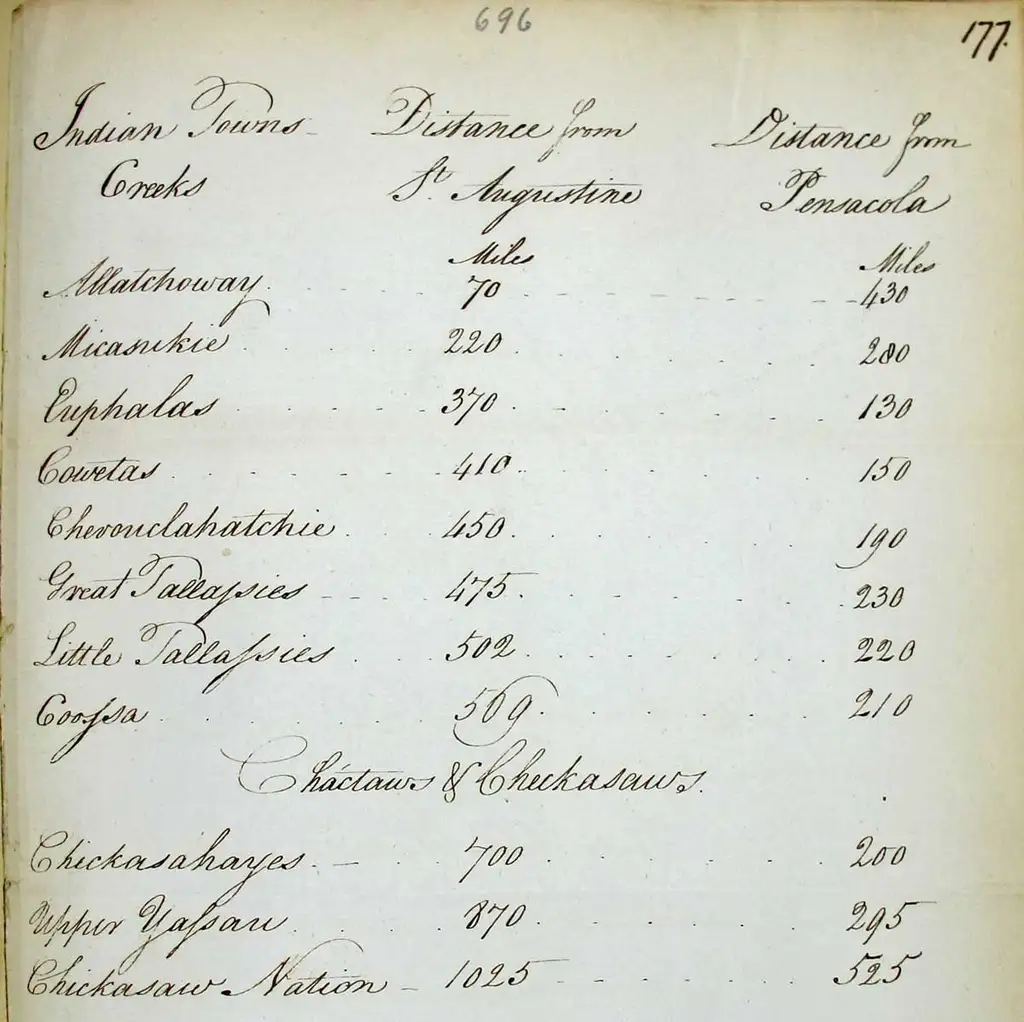 696
177.
Indian Towns Distance from Distance from
Creeks St. Augustine Pensacola
Miles Miles
Allatchoway 70 430
Micasukie 220 280
Euphalas 370 130
Cowetas 410 150
Chevouclahatchie 450 190
Great Tallassies 475 230
Little Tallassies 502 220
Coossa 509 210
Cháctaws & Checkasaws.
Chickasahayes 700 200
Upper Yassau 870 295
Chickasaw Nation 1025 525